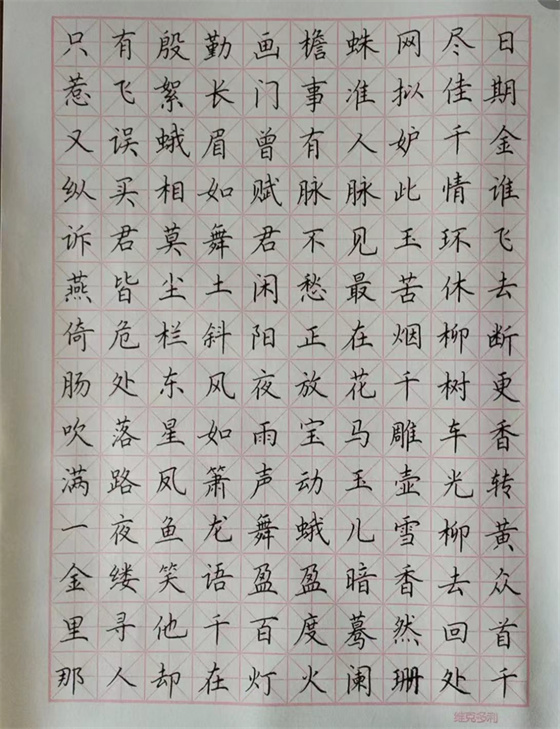 只有殷勤画檐蛛网尽日
惹飞絮长门事准拟佳期
又误蛾眉曾有人妒千金
纵买相如赋脉脉此情谁
诉君莫舞君不见玉环飞
燕皆尘土闲愁最苦休去
倚危栏斜阳正在烟柳断
肠处东风夜放花千树更
吹落星如雨宝马雕车香
满路凤箫声动玉壶光转
一夜鱼龙舞蛾儿雪柳黄
金缕笑语盈盈暗香去众
里寻他千百度蓦然回首
那人却在灯火阑珊处千